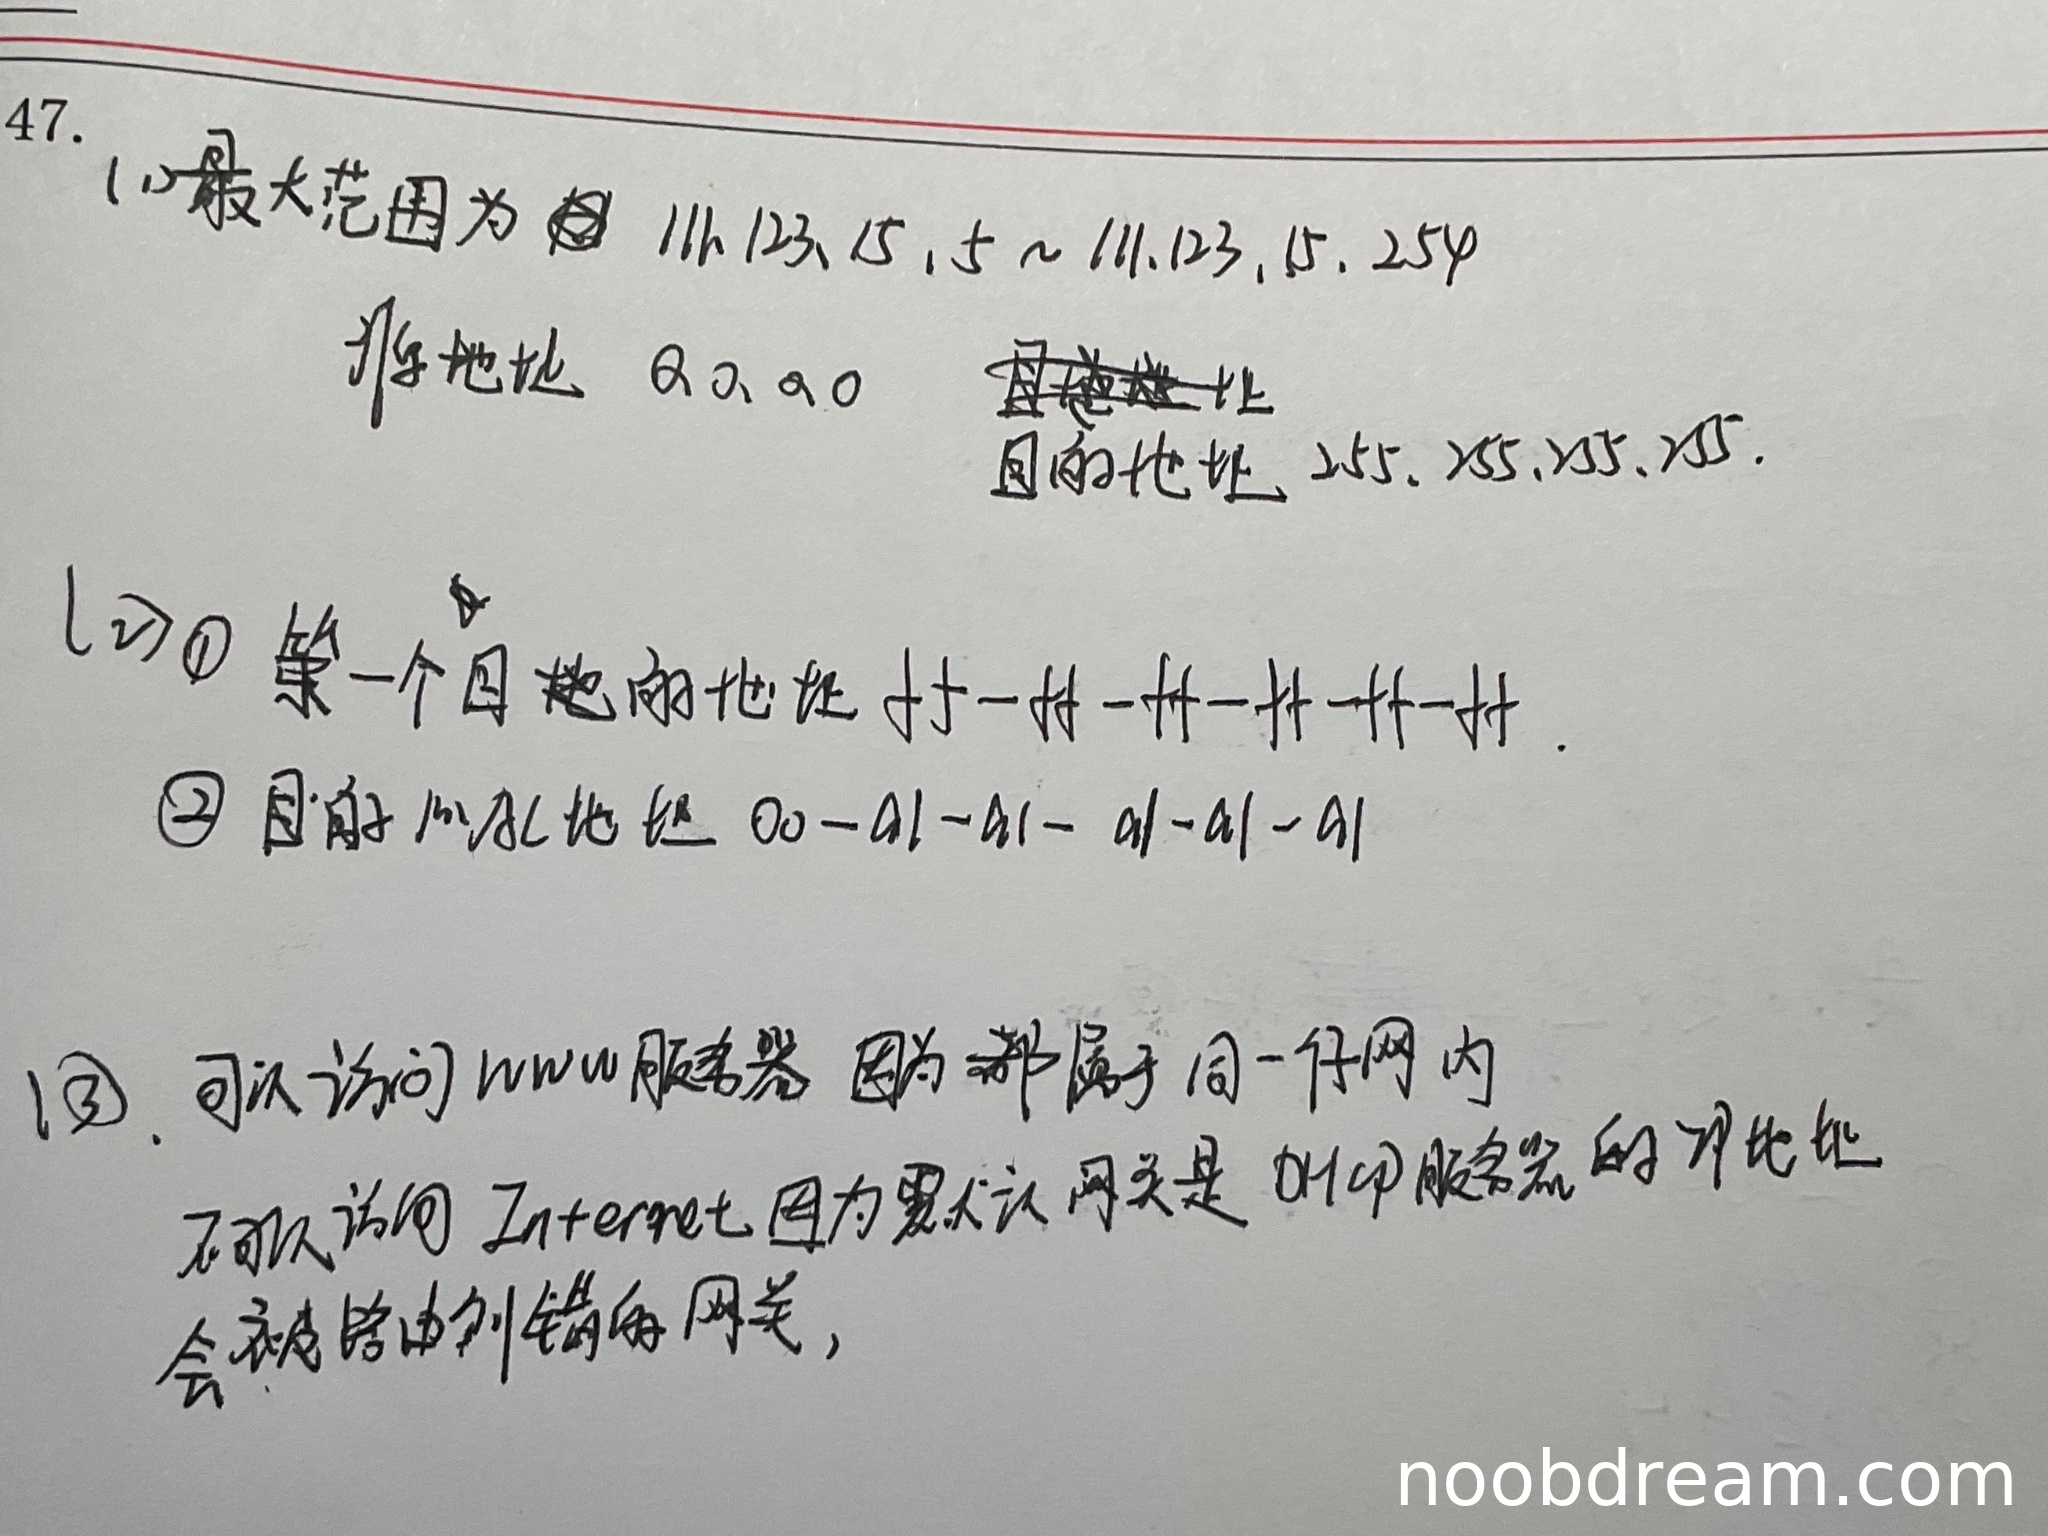 47.
(1) 最大范围为 111.123.15.5 ~ 111.123.15.254
源地址 0.0.0.0
目的地址 255.255.255.255.
(2) ① 第一个目的地址 ff-ff-ff-ff-ff-ff.
② 目的 mac 地址 00-a1-a1-a1-a1-a1
(3). 可以访问 WWW 服务器 因为都属于同一子网内
不可以访问 Internet 因为默认网关是 DHCP 服务器的 IP 地址
会被路由到错的网关,
noobdream.com